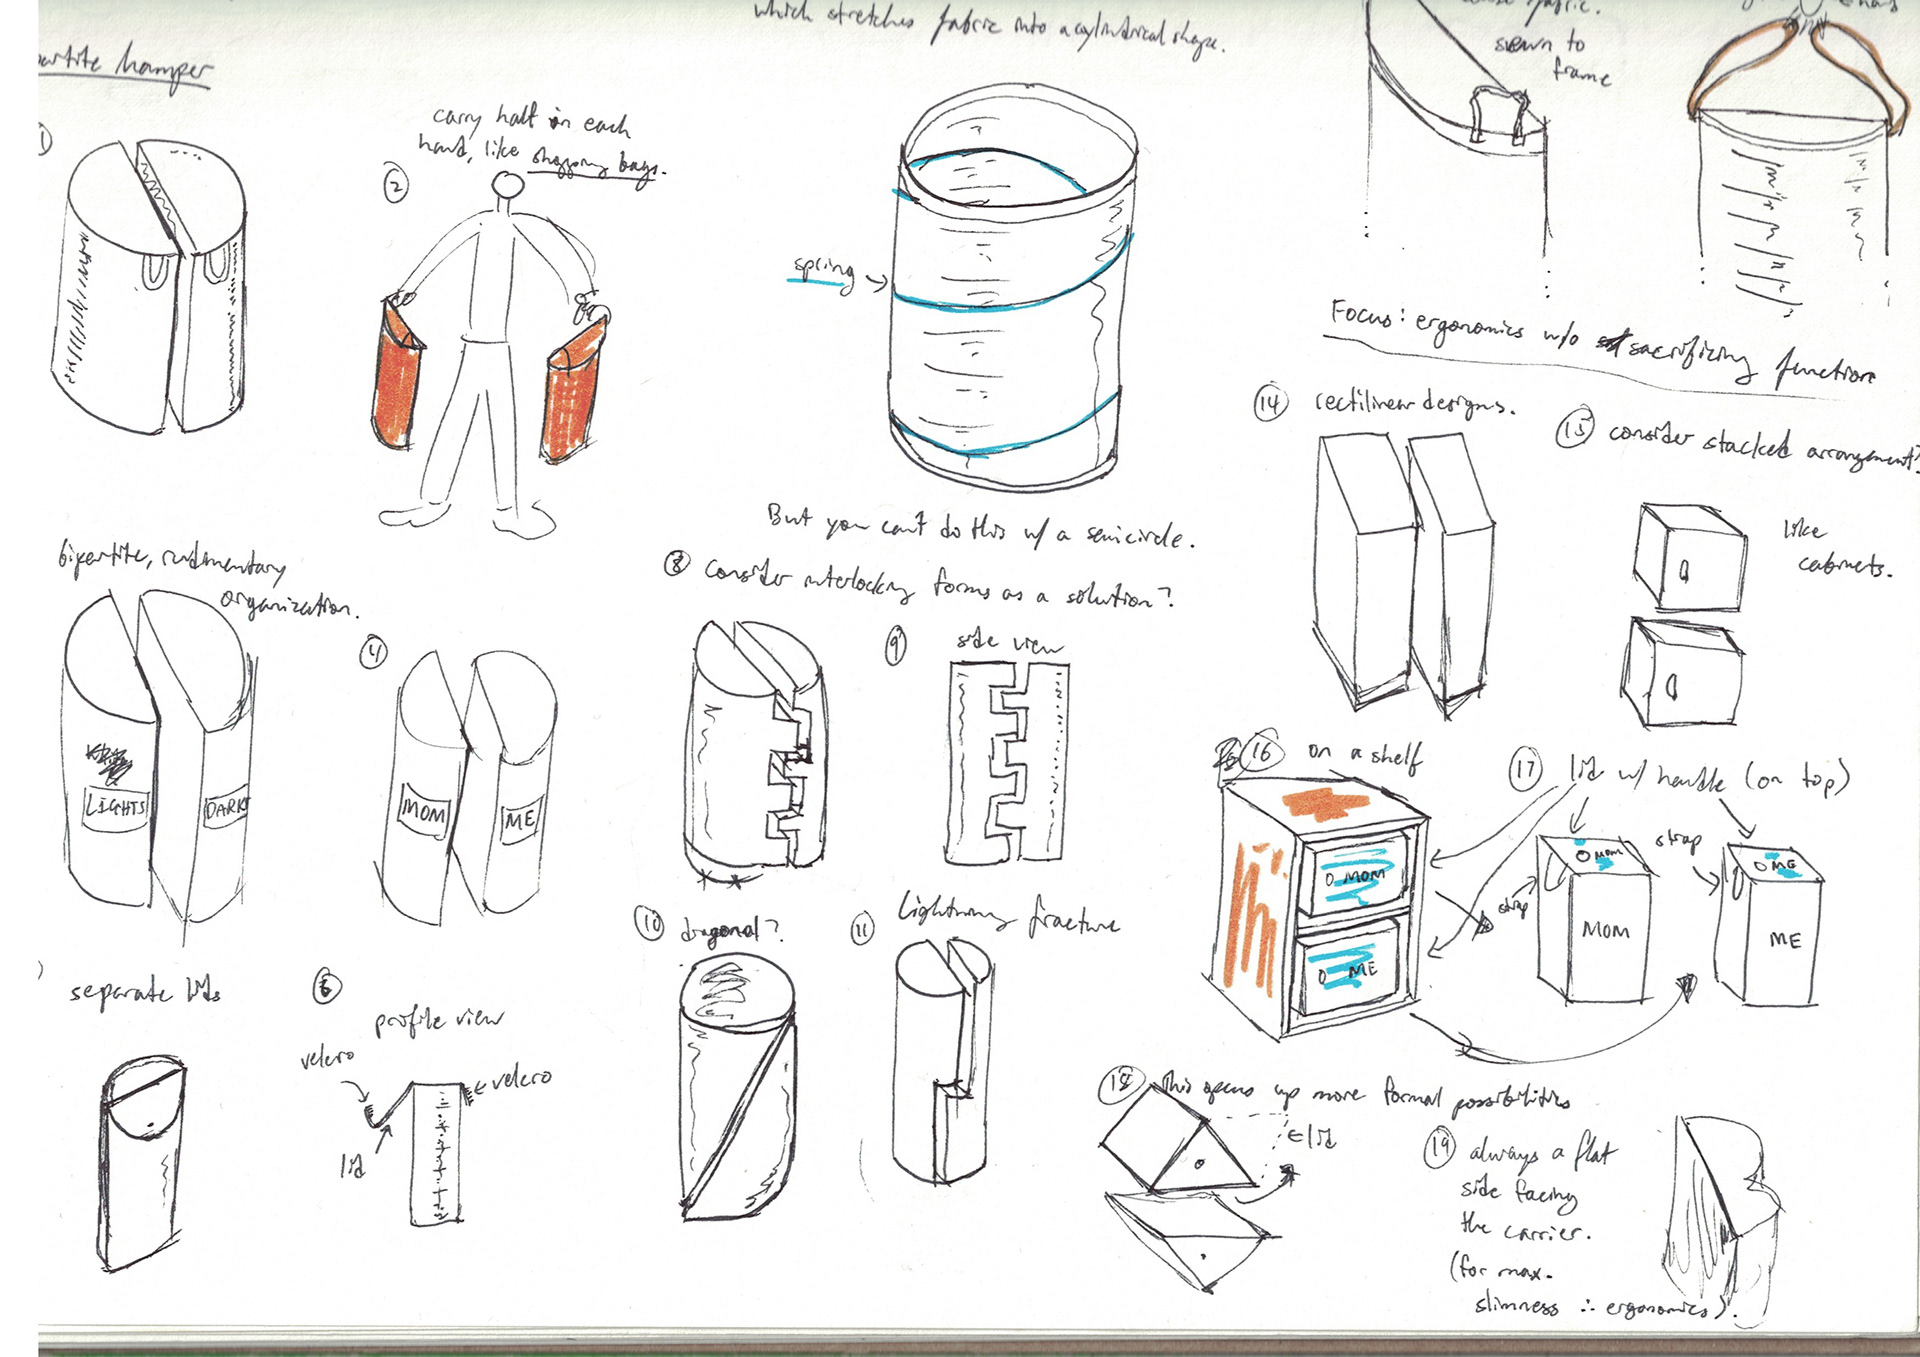 which stretches fabric into a cylindrical shape.
partite hamper
1
2
carry half in each
hand, like shopping bags.
spring
But you can't do this w/ a semicircle.
fabric.
sewn to
frame
Focus: ergonomics w/o sacrificing function
bipartite, rudimentary
organization.
LIGHTS
DARK
4
MOM
ME
separate lids
6
profile view
velcro
velcro
lid
8 consider interlocking forms as a solution?
9
side view
10 diagonal?
11
Lightning fracture
14 rectilinear designs.
15 consider stacked arrangement?
like
cabinets.
16 on a shelf
O MOM
O ME
17 lid w/ handle (on top)
strap
strap
O MOM
MOM
O ME
ME
18 this opens up more formal possibilities
lid
19 always a flat
side facing
the carrier.
(for max.
slimness ∴ ergonomics).